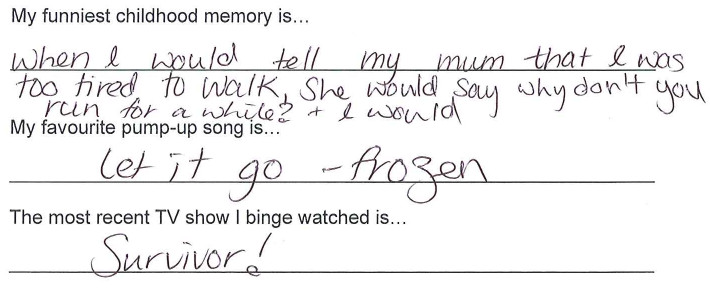 My funniest childhood memory is...
When I would tell my mum that I was
too tired to walk, She would say why don't you
run for a while? + I would
My favourite pump-up song is...
Let it go - frozen
The most recent TV show I binge watched is...
Survivor!